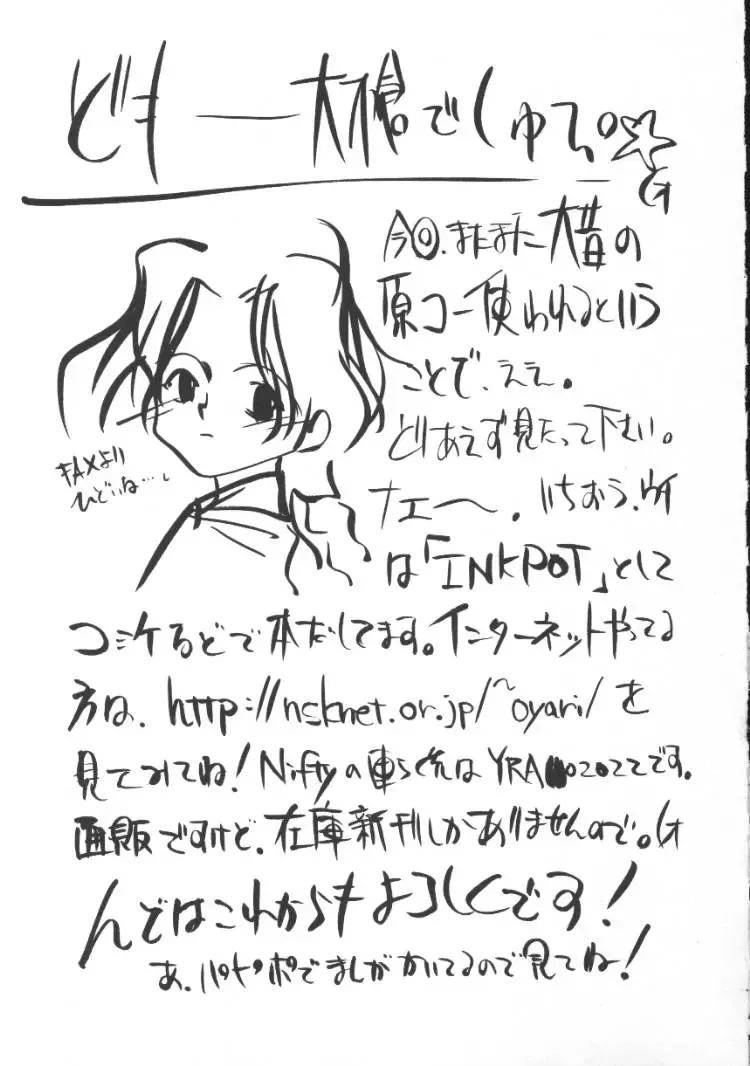 どもー大槍でしゅっ。☆
今回、またまた大昔の
原コー使われるという
ことで、ええ。
とりあえず見たって下さい。
ナェー〜。いちおう、ウチ
は「INKPOT」として
コミケなどで本だしてます。インターネットやってる
方は、http://nsknet.or.jp/~oyari/を
見てみてね!Niftyの連らく先はYRA02022です。
通販ですけど、在庫新刊しかありませんので。(オ
んではこれからもよろしくです!
あ、パセ゜ポでまんががかいてるので見てね!
FAXより
ひどいな…。